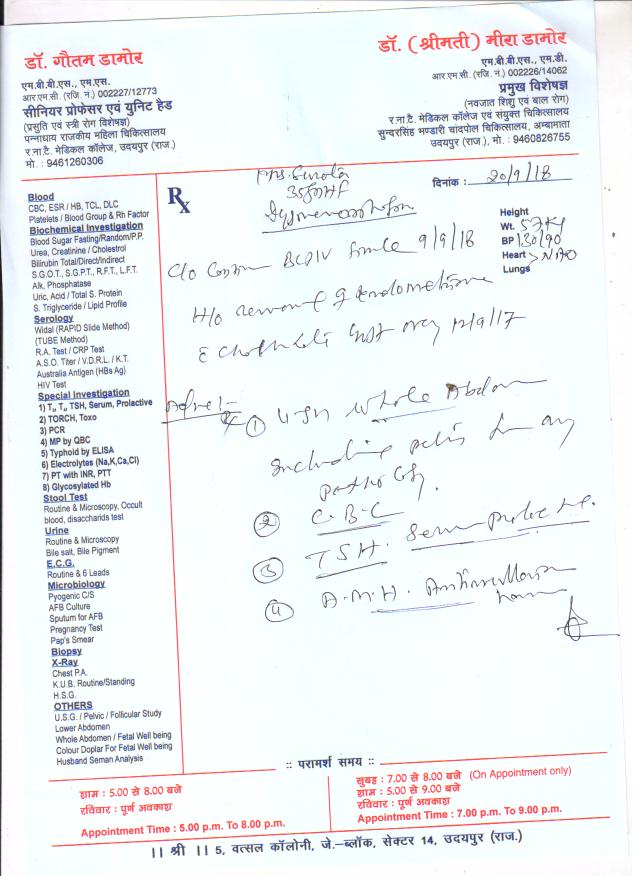 डॉ. गौतम डामोर
एम.बी.बी.एस., एम.एस.
आर.एम.सी. (रजि. नं.) 002227/12773
सीनियर प्रोफेसर एवं युनिट हैड
(प्रसुति एवं स्त्री रोग विशेषज्ञ)
पन्नाधाय राजकीय महिला चिकित्सालय
र.ना.टै. मेडिकल कॉलेज, उदयपुर (राज.)
मो. : 9461260306
डॉ. (श्रीमती) मीरा डामोर
एम.बी.बी.एस., एम.डी.
आर.एम.सी. (रजि. नं.) 002226/14062
प्रमुख विशेषज्ञ
(नवजात शिशु एवं बाल रोग)
र.ना.टै. मेडिकल कॉलेज एवं संयुक्त चिकित्सालय
सुन्दरसिंह भण्डारी चांदपोल चिकित्सालय, अम्बामाता
उदयपुर (राज.), मो. : 9460826755
Rx
Mrs.
दिनांक : 20/9/18
Height
Wt. 57 Kg
BP 130/90
Heart > NAD
Lungs
C/o 9/9/18
H/o of
12/9/17
Advice:-
① USG Whole Abdomen
Including pelvis for any
pathology.
② C.B.C
③ TSH. Serum
④ A.M.H.
Blood
CBC, ESR / HB, TCL, DLC
Platelets / Blood Group & Rh Factor
Biochemical Investigation
Blood Sugar Fasting/Random/P.P.
Urea, Creatinine / Cholestrol
Bilirubin Total/Direct/Indirect
S.G.O.T., S.G.P.T., R.F.T., L.F.T.
Alk, Phosphatase
Uric, Acid / Total S. Protein
S. Triglyceride / Lipid Profile
Serology
Widal (RAPID Slide Method)
(TUBE Method)
R.A. Test / CRP Test
A.S.O. Titer / V.D.R.L. / K.T.
Australia Antigen (HBs Ag)
HIV Test
Special Investigation
1) T₃, T₄, TSH, Serum, Prolactive
2) TORCH, Toxo
3) PCR
4) MP by QBC
5) Typhoid by ELISA
6) Electrolytes (Na,K,Ca,Cl)
7) PT with INR, PTT
8) Glycosylated Hb
Stool Test
Routine & Microscopy, Occult
blood, disaccharids test
Urine
Routine & Microscopy
Bile salt, Bile Pigment
E.C.G.
Routine & 6 Leads
Microbiology
Pyogenic C/S
AFB Culture
Sputum for AFB
Pregnancy Test
Pap's Smear
Biopsy
X-Ray
Chest P.A.
K.U.B. Routine/Standing
H.S.G.
OTHERS
U.S.G. / Pelvic / Follicular Study
Lower Abdomen
Whole Abdomen / Fetal Well being
Colour Doplar For Fetal Well being
Husband Seman Analysis
:: परामर्श समय ::
शाम : 5.00 से 8.00 बजे
रविवार : पूर्ण अवकाश
Appointment Time : 5.00 p.m. To 8.00 p.m.
सुबह : 7.00 से 8.00 बजे (On Appointment only)
शाम : 5.00 से 9.00 बजे
रविवार : पूर्ण अवकाश
Appointment Time : 7.00 p.m. To 9.00 p.m.
|| श्री || 5, वत्सल कॉलोनी, जे.-ब्लॉक, सेक्टर 14, उदयपुर (राज.)